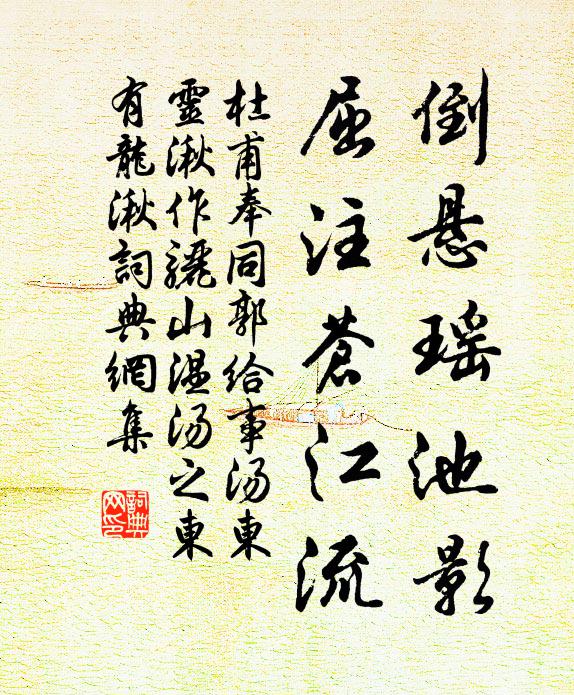 倒悬瑶池影
屈注蒼江流
杜甫奉同郭给事湯東
靈湫作驪山溫湯之東
有龍湫詞典網集
詞典网印